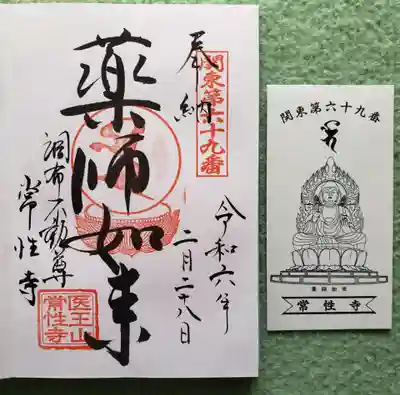 関東第六十九番
奉納
薬師如来
調布不動尊
常性寺
令和六年
二月二十八日
医王山
常性寺
関東第六十九番
薬師如来
常性寺